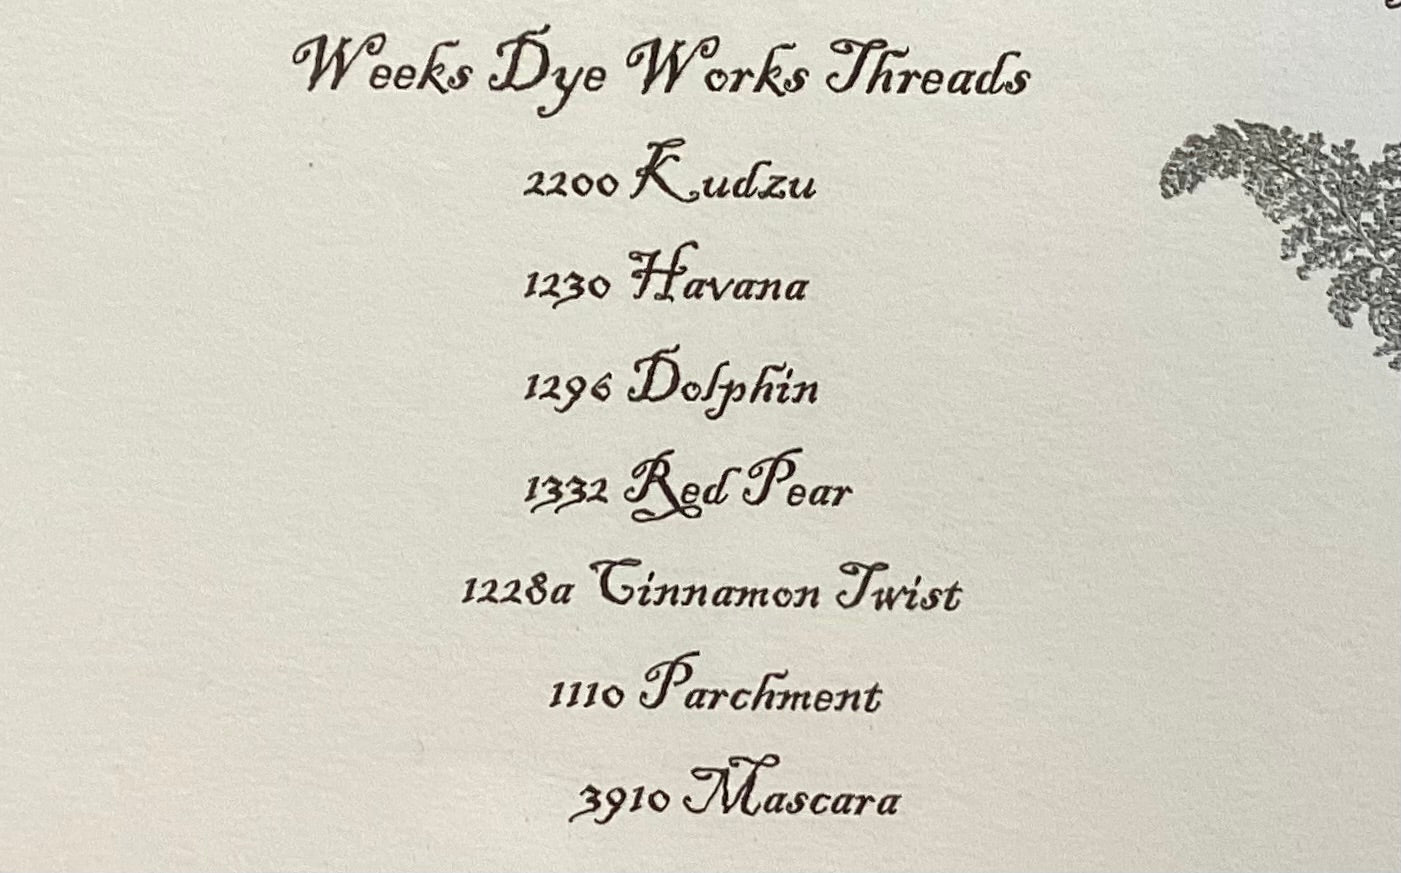 Weeks Dye Works Threads
2200 Kudzu
1230 Havana
1296 Dolphin
1332 Red Pear
1228a Cinnamon Twist
1110 Parchment
3910 Mascara